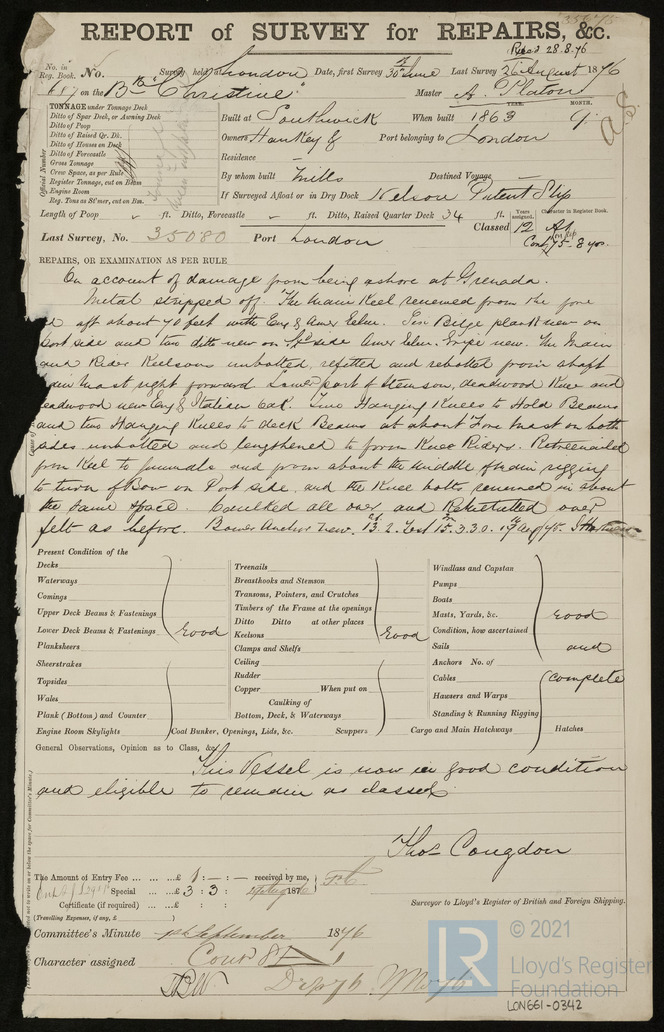 REPORT of SURVEY for REPAIRS, &c.
Recd 28.8.76
No. in Reg. Book. No. Survey held at London Date, first Survey 30th June Last Survey 26 August 1876
687 on the Bk "Christine" Master A. Platon
TONNAGE under Tonnage Deck
Ditto of Spar Deck, or Awning Deck
Ditto of Poop
Ditto of Raised Qr. Dk.
Ditto of Houses on Deck
Ditto of Forecastle
Gross Tonnage
Crew Space, as per Rule
Register Tonnage, cut on Beam
Engine Room
Reg. Tons as St'mer, cut on Bm.
Official Number
YEAR. MONTH.
Built at Southwick When built 1863 9
Owners Hankey & Port belonging to London
Residence —
By whom built Mills Destined Voyage —
If Surveyed Afloat or in Dry Dock Nelson Patent Slip
Length of Poop ft. Ditto, Forecastle ft. Ditto, Raised Quarter Deck 34 ft.
Years assigned. Character in Register Book.
Classed 12 A1
Cont 75-8 yrs.
Last Survey, No. 35080 Port London
REPAIRS, OR EXAMINATION AS PER RULE
On account of damage from being ashore at Grenada.
Metal stripped off. The Main Keel renewed from the fore
aft about 70 feet with Eng & Amer Elm. Ten Bilge plank new on
port side and two ditto new on side Amer Elm. Gripe new. The Main
and Rider Keelsons unbolted, refitted and rebolted from abaft
Main Mast right forward Lower part of Stemson, deadwood Knee and
deadwood new Eng & Italian Oak. Two Hanging Knees to Hold Beams
and two Hanging Knees to deck Beams at about Fore Mast on both
sides unbolted and lengthened to form Knee Riders. Retreenailed
from Keel to Gunwale and from about the middle of Main rigging
to turn of Bow on Port side, and the Knee bolts renewed in about
the same space. Caulked all over and Remetalled over
felt as before. Bower Anchor new.
Present Condition of the
Decks
Waterways
Comings
Upper Deck Beams & Fastenings
Lower Deck Beams & Fastenings
Planksheers
Sheerstrakes
Topsides
Wales
Plank (Bottom) and Counter
Engine Room Skylights
Good
Treenails
Breasthooks and Stemson
Transoms, Pointers, and Crutches
Timbers of the Frame at the openings
Ditto Ditto at other places
Keelsons
Clamps and Shelfs
Ceiling
Rudder
Copper When put on
Caulking of
Bottom, Deck, & Waterways
Coal Bunker, Openings, Lids, &c. Scuppers
Good
Windlass and Capstan
Pumps
Boats
Masts, Yards, &c.
Condition, how ascertained
Sails
Anchors No. of
Cables
Hawsers and Warps
Standing & Running Rigging
Cargo and Main Hatchways Hatches
Good
and
complete
General Observations, Opinion as to Class, &c.
This Vessel is now in good condition
and eligible to remain as classed
Thos Congdon
Surveyor to Lloyd's Register of British and Foreign Shipping.
The Amount of Entry Fee £ 1 : — : — received by me,
Special £ 3 : 3 : 1876
Certificate (if required) £ : :
(Travelling Expenses, if any, £ )
Committee's Minute 1st September 1876
Character assigned Cont 8 A 1
© 2021
LR
Lloyd's Register
Foundation
LON661-0342